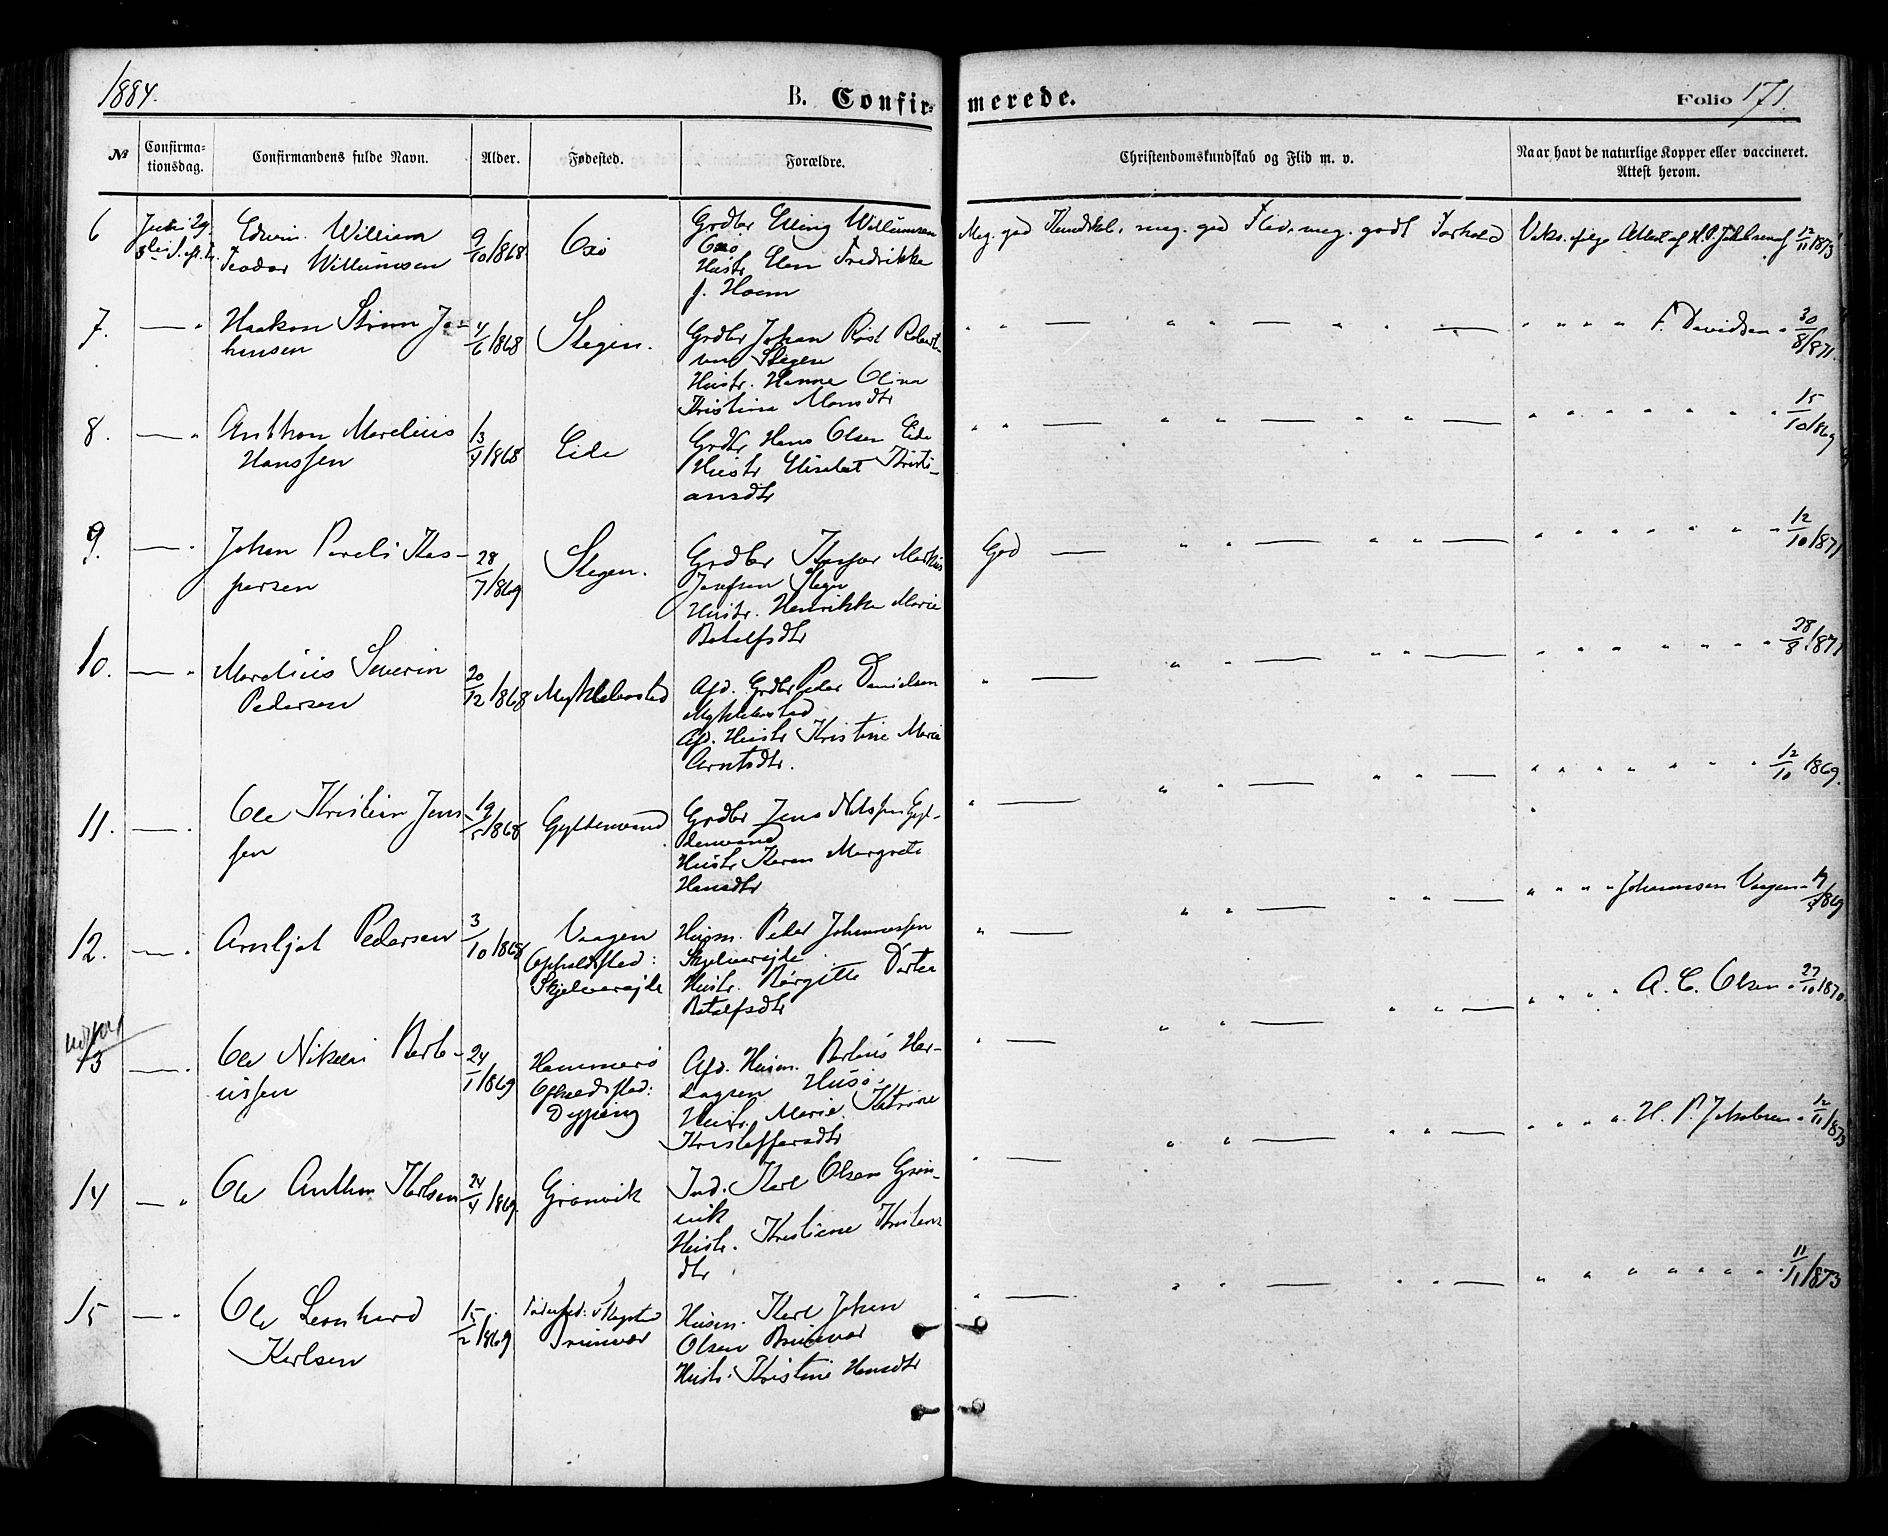 1884.
B. Confir-
merede.
Folio 171.
№
Confirma-
tionsdag.
Confirmandens fulde Navn.
Alder.
Fødested.
Forældre.
Christendomskundskab og Flid m. v.
Naar havt de naturlige Kopper eller vaccineret.
Attest herom.
6
Juni 29.
Edwin William
Teodor Willumsen
9/10/1868
Oxø
Grdbr Elling Willumsen
Oxø
Hustr Elen Fredrikke
f. Hoem
Meg. god Kundskb., meg. god Flid, meg. godt Forhold
Vaks. ifølge Attest af H. P. Jakobsen af 12/11/1873
7.
— "
Haakon Strøm Jo-
hensen
4/6/1868
Stegen.
Grdbr Johan Røst
Stegen
Hustr. Hanna Olina
Kristina Monsdtr
" " — " " — " " —
" " " " F. Davidsen " 30/8/1871.
8.
— "
Anthon Marelius
Hanssen
13/4/1868
Eide
Grdbr Hans Olsen Eide
Hustr Elisabet Kristi-
ansdtr
" " — " " — " " —
" " " " " " " 15/10/1869
9.
— "
Johan Parelis Kas-
persen
28/7/1869
Stegen.
Grdbr Kaspar Markus
Josefsen Stegen
Hustr. Henrikke Marie
Botolfsdtr
God — " " — " " —
" " " " " " " 12/10/1871
10.
— "
Marelius Severin
Pedersen
20/12/1868
Myklebostad
Afd. Grdbr Peder Danielsen
Myklebostad
Afd. Hustr Kristine Marie
Arntsdtr.
" — " " — " " —
" " " " " " " 28/8/1871
11.
— "
Ole Kristian Jens
sen
19/5/1868
Gyltenvand
Grdbr Jens Nilssen Gyl-
tenvand
Hustr Karen Margrete
Hansdtr
" — " " — " " —
" " " " " " " 12/10/1869.
12.
— "
Arnljot Pedersen
3/10/1868
Vaagen
Opholdssted:
Skjelvareide
Husm. Peder Johannessen
Skjelvareide
Hustr. Birgitte Dortea
Botolfsdtr
" — " " — " " —
" " " " Johannesen Vaagen
13
— "
Ole Nikolai Berte-
ussen
24/1/1869
Hammerø
Opholdssted:
Dypping
Afd. Husm. Berteus Har-
Husø.
Hustr. Marie Katrine
Kristoffersdtr
" — " " — " " —
" " " " A. C. Olsen " 27/10/1870.
14
— "
Ole Anthon Karlsen
24/4/1869
Grønvik
Ind. Karl Olsen Grøn-
vik
Hustr. Kristiane Kristens
dtr
" — " " — " " —
" " " " H. P. Jakobsen " 12/11/1873
15
— "
Ole Leonhard
Karlsen
15/2/1869
Husm. Karl Johan
Olsen Brunvær
Hustr. Kristine Hansdtr
" — " " — " " —
" " " " " " " 11/11/1873